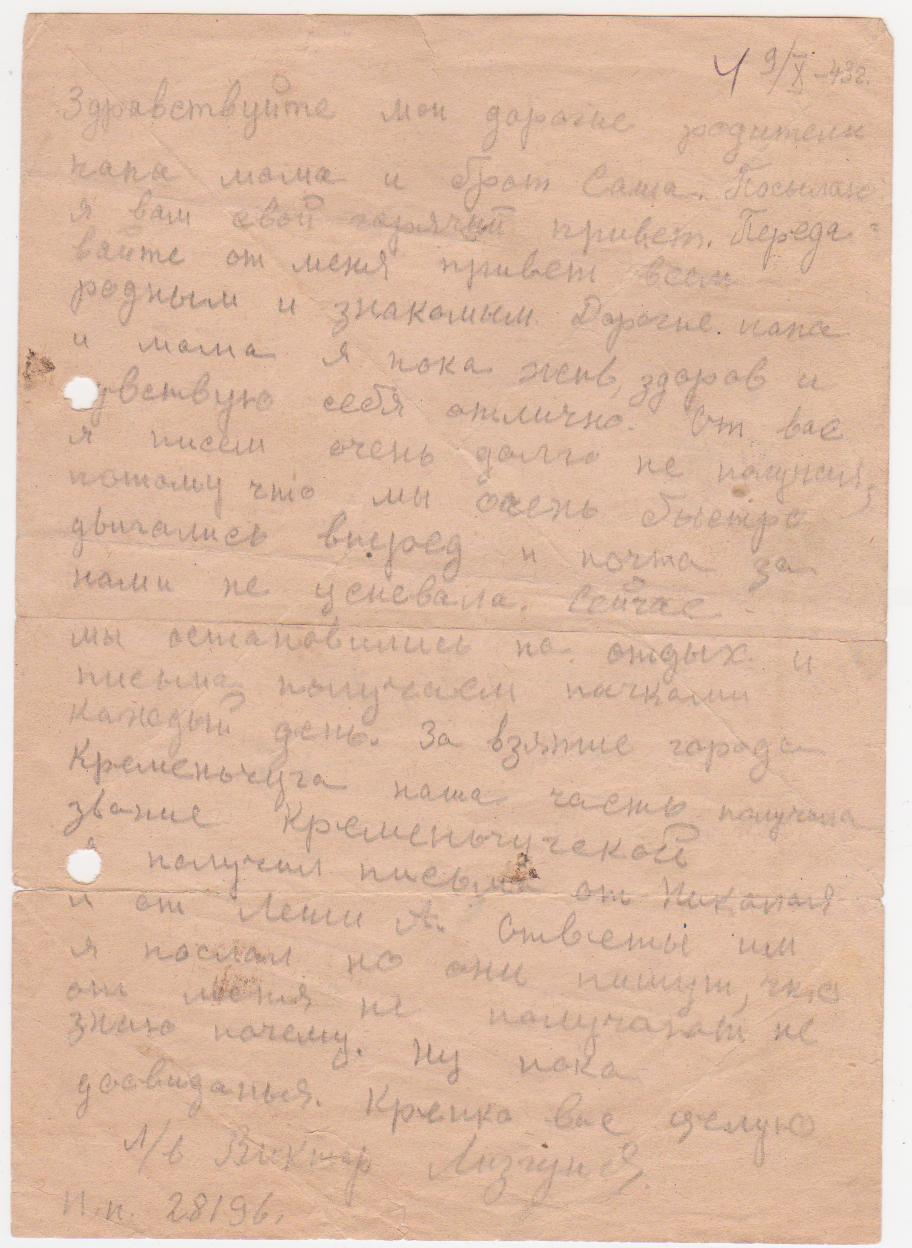 9/X-43г.
Здравствуйте мои дорогие родители
папа мама и брат Саша. Посылаю
я вам свой горячий привет. Переда-
вайте от меня привет всем
родным и знакомым. Дорогие папа
и мама я пока жив, здоров и
увствую себя отлично. От вас
я писем очень долго не получал,
потому что мы очень быстро
двигались вперед и почта за
нами не успевала. Сейчас
мы остановились на отдых и
письма получаем пачками
каждый день. За взятие города
Кременьчуга наша часть получила
звание Кременьчугской
я получил письма от Николая
и от Леши А. Ответы им
я послал но они пишут, что
от меня не получают не
знаю почему. Ну пока
досвиданья. Крепко вас целую
Виктор
П.п. 28196.